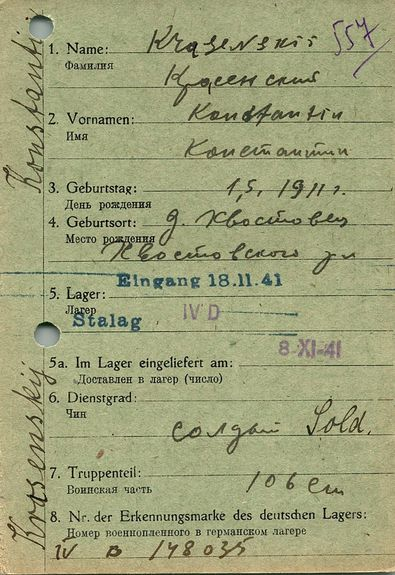 1. Name: Krasenskii 557
Фамилия
Красенский
2. Vornamen: Konstantin
Имя
Константин
3. Geburtstag: 1,5, 1911 г.
День рождения
4. Geburtsort: д. Хвостовец
Место рождения
Хвостовского
Eingang 18.11.41
5. Lager:
Лагерь
Stalag IV D
8-XI-41
5a. Im Lager eingeliefert am:
Доставлен в лагерь (число)
6. Dienstgrad:
Чин
солдат Sold.
7. Truppenteil: 106
Воинская часть
8. Nr. der Erkennungsmarke des deutschen Lagers:
Номер военнопленного в германском лагере
IV B 148035
Krasenskij Konstantin